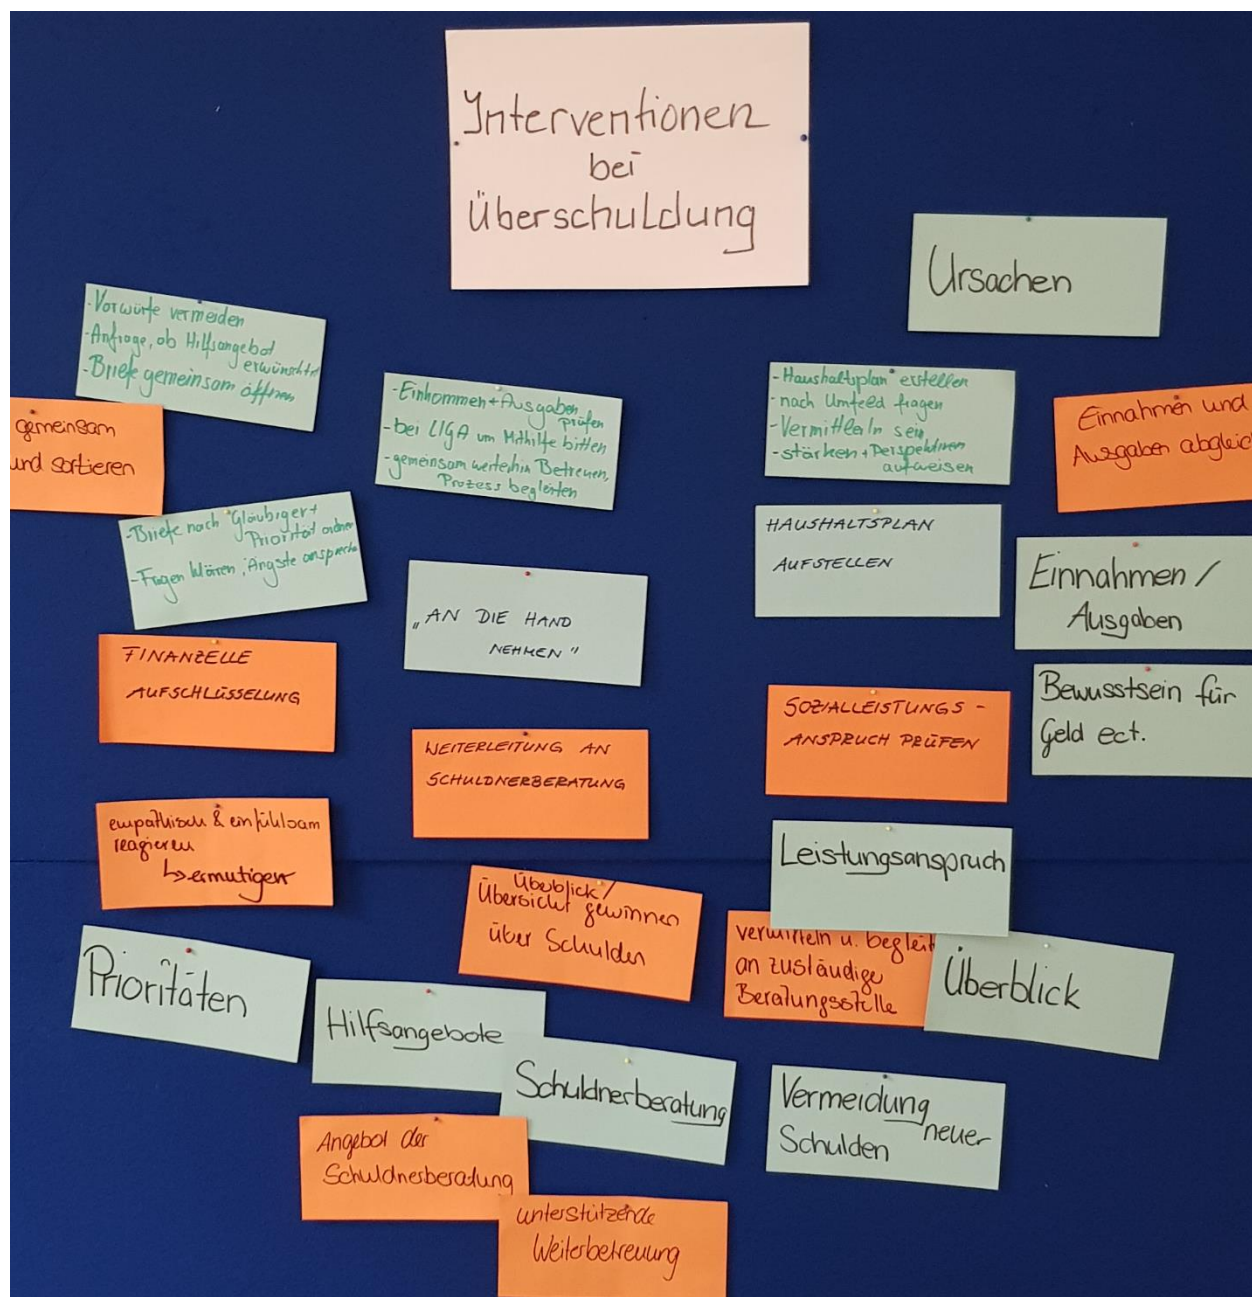 Interventionen
bei
Überschuldung
Ursachen
-Vorwürfe vermeiden
-Anfrage, ob Hilfsangebot
erwünscht
-Briefe gemeinsam öffnen
gemeinsam
und sortieren
-Einkommen+Ausgaben
prüfen
-bei LIGA um Mithilfe bitten
-gemeinsam weiterhin Betreuen,
Prozess begleiten
-Haushaltsplan erstellen
-nach Umfeld fragen
-VermittlerIn sein
-stärken + Perspektiven
aufweisen
Einnahmen und
Ausgaben abgleic
-Briefe nach Gläubiger+
Priorität ordnen
-Fragen klären, Ängste anspreche
HAUSHALTSPLAN
AUFSTELLEN
Einnahmen /
Ausgaben
„AN DIE HAND
NEHMEN"
FINANZELLE
AUFSCHLÜSSELUNG
Bewusstsein für
Geld ect.
SOZIALLEISTUNGS-
ANSPRUCH PRÜFEN
WEITERLEITUNG AN
SCHULDNERBERATUNG
empathisch & einfühlsam
reagieren
↳ermutigen
Leistungsanspruch
Überblick/
Übersicht gewinnen
über Schulden
vermitteln u. begleit
an zuständige
Beratungsstelle
Überblick
Prioritäten
Hilfsangebote
Schuldnerberatung
Vermeidung
neuer
Schulden
Angebot der
Schuldnerberatung
unterstützende
Weiterbetreuung